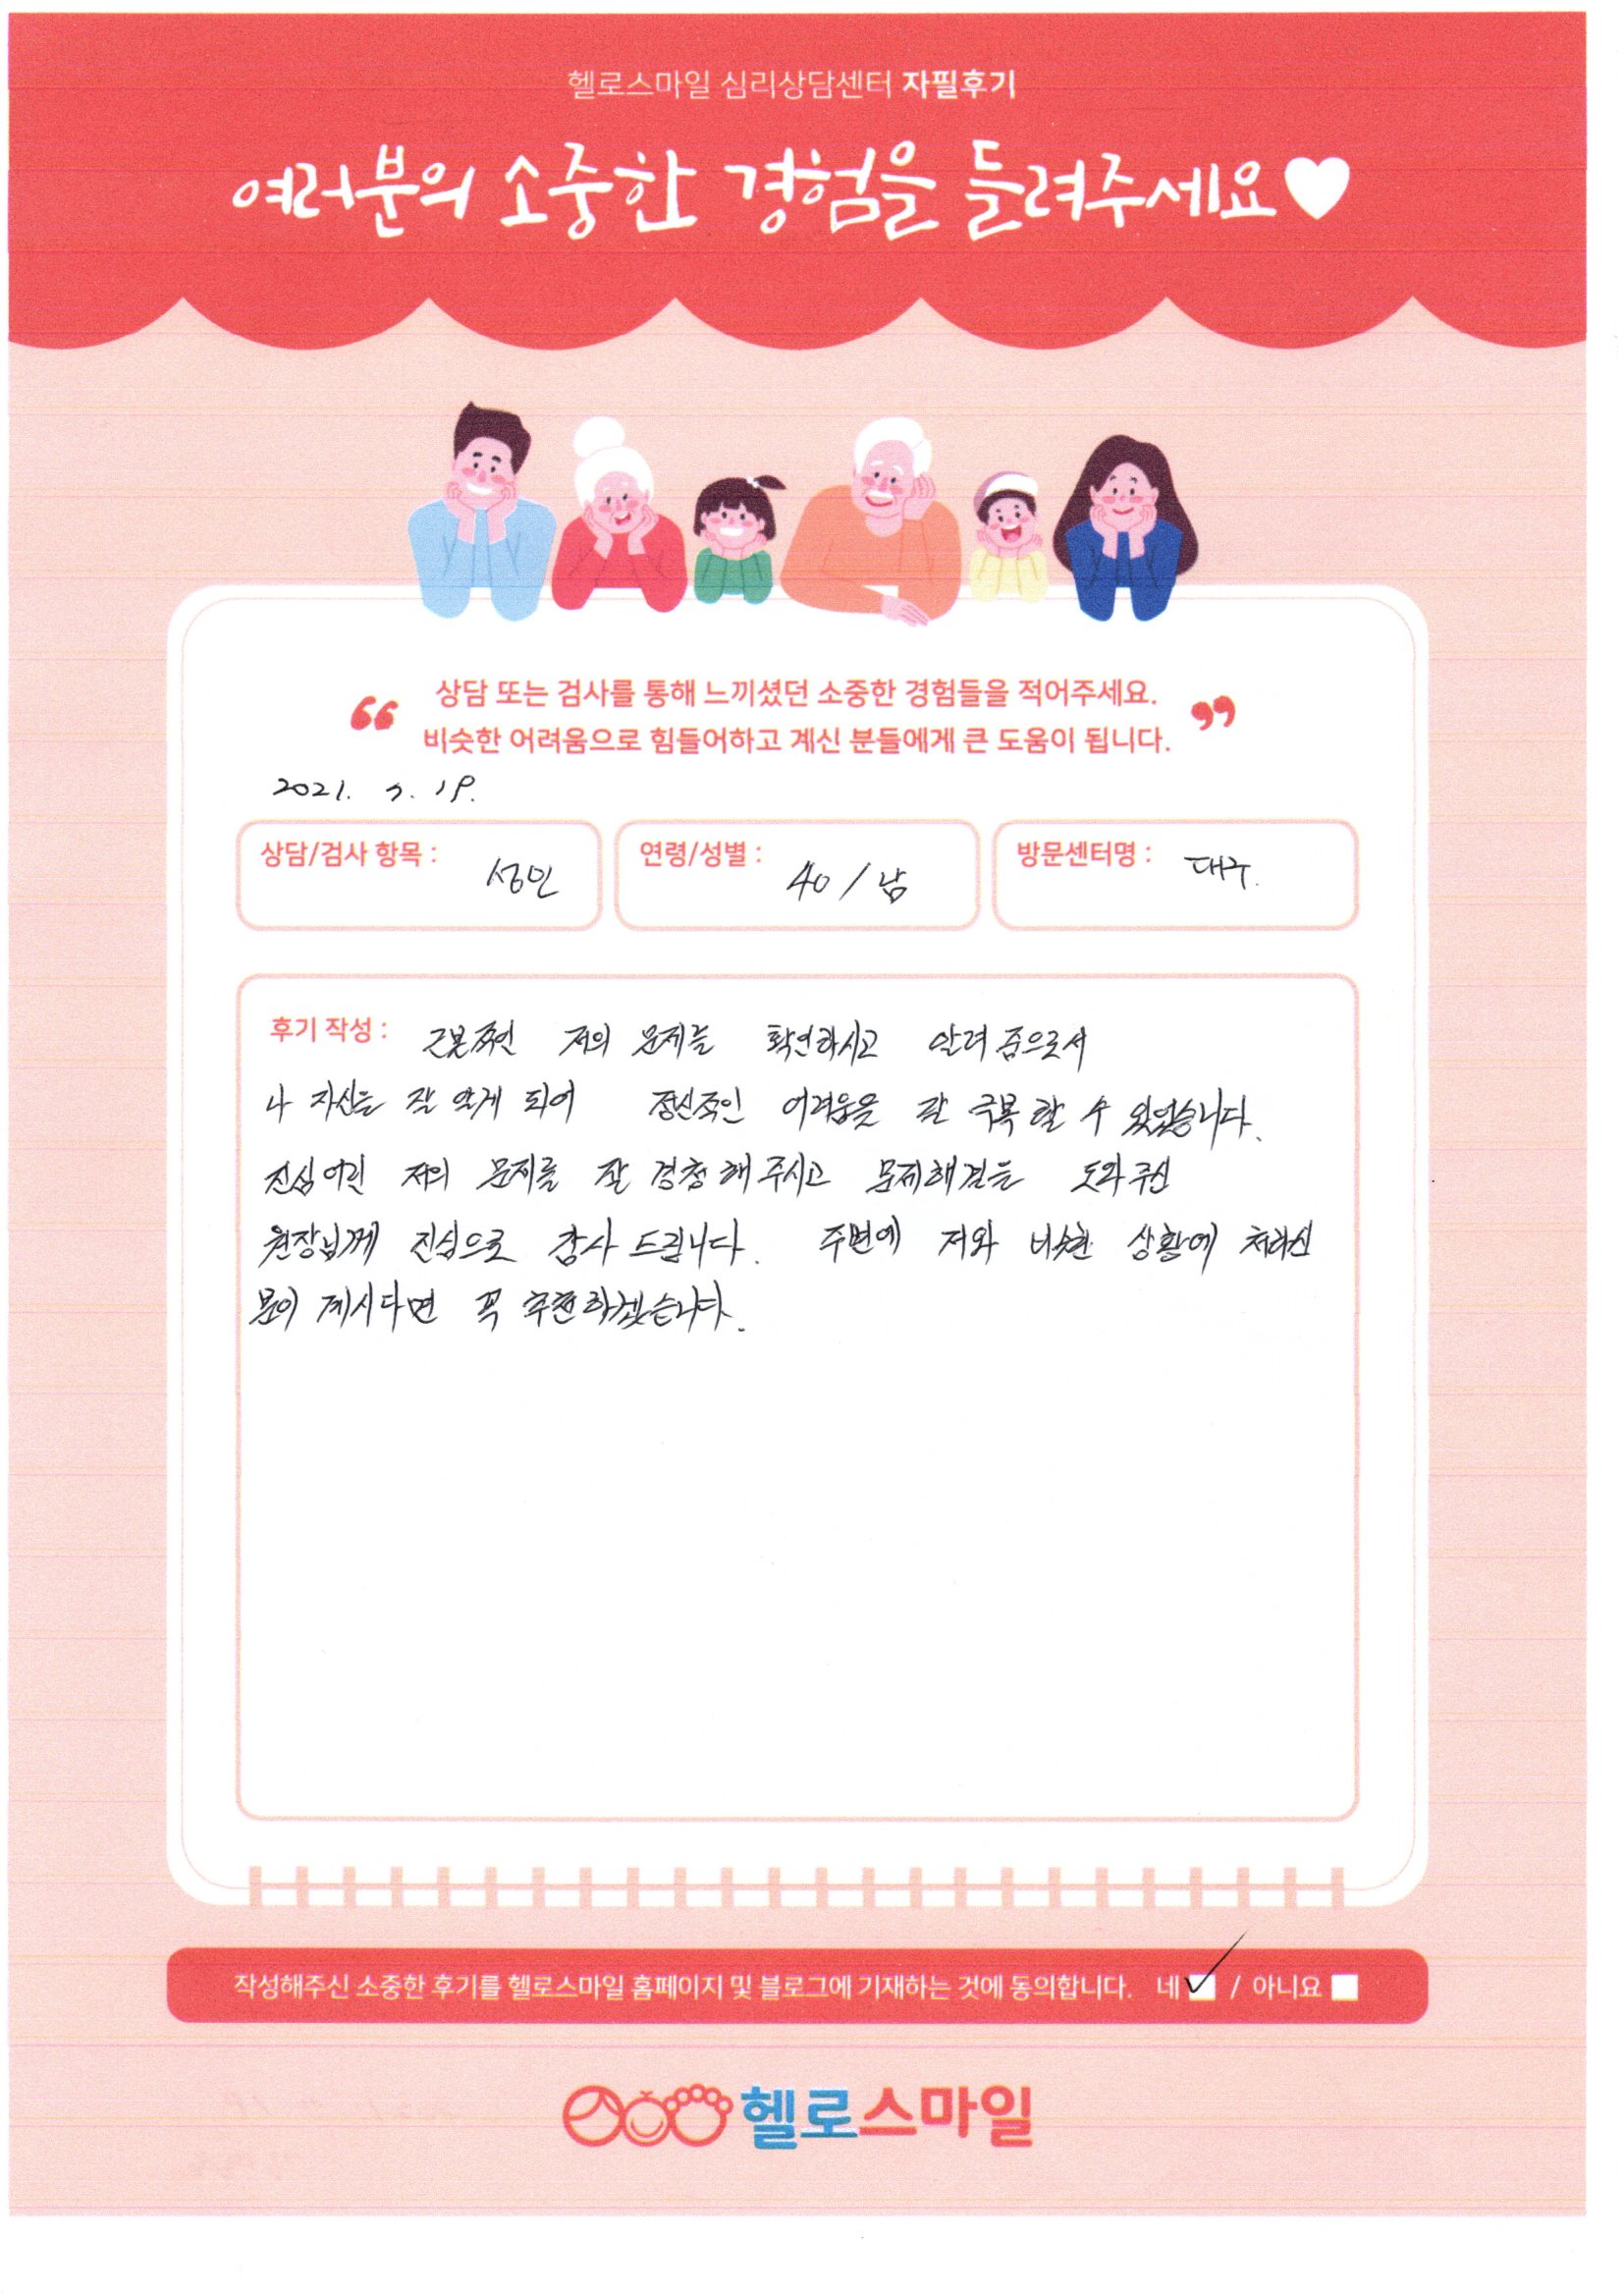 헬로스마일 심리상담센터 자필후기
여러분의 소중한 경험을 들려주세요♥
“ 상담 또는 검사를 통해 느끼셨던 소중한 경험들을 적어주세요. ”
비슷한 어려움으로 힘들어하고 계신 분들에게 큰 도움이 됩니다.
2021. 7. 19.
상담/검사 항목 : 성인
연령/성별 : 40 / 남
방문센터명 : 대구.
후기 작성 : 근본적인 저의 문제를 확인하시고 알려 줌으로서
나 자신을 잘 알게 되어 정신적인 어려움을 잘 극복 할 수 있었습니다.
진심어린 저의 문제를 잘 경청 해 주시고 문제해결을 도와주신
원장님께 진심으로 감사 드립니다. 주변에 저와 비슷한 상황에 처하신
분이 계시다면 꼭 추천하겠습니다.
작성해주신 소중한 후기를 헬로스마일 홈페이지 및 블로그에 기재하는 것에 동의합니다. 네 ✓ / 아니요
헬로스마일